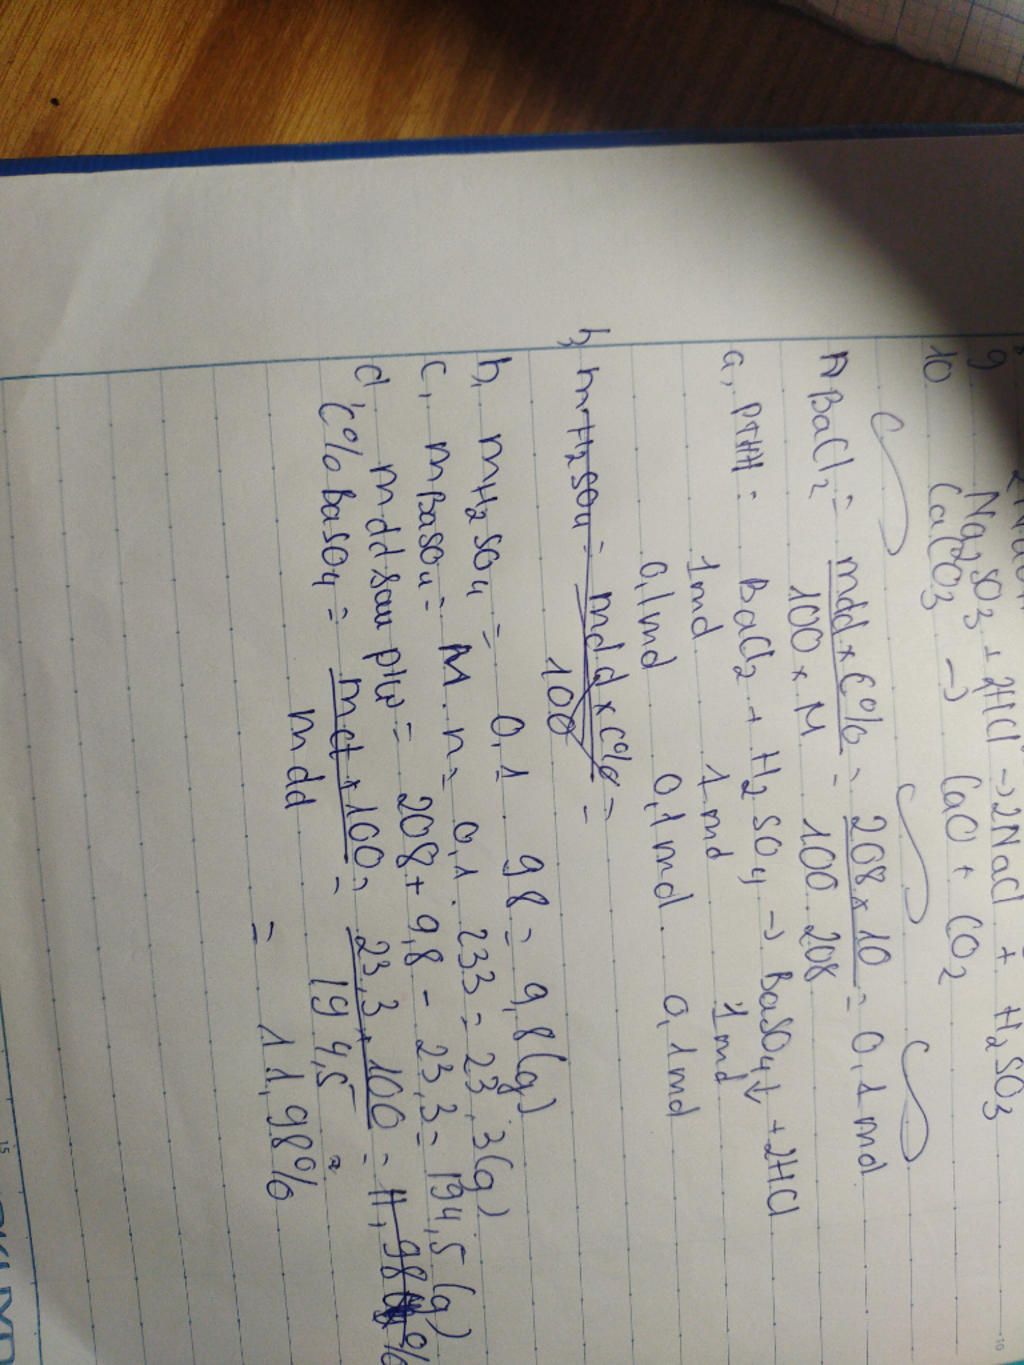 9 Na2SO3 + 2HCl → 2NaCl + H2SO3
10 CaCO3 → CaO + CO2
nBaCl2 = mdd × C% / 100 × M = 208 × 10 / 100 208 = 0,1 mol
a, PTHH : BaCl2 + H2SO4 → BaSO4↓ + 2HCl
1mol 1mol 1mol
0,1mol 0,1mol 0,1mol
b, mH2SO4 = mdd × C% / 100 =
b, mH2SO4 = 0,1 98 = 9,8 (g)
c, mBaSO4 = M . n = 0,1 . 233 = 23,3 (g)
d, mdd sau pứ = 208 + 9,8 - 23,3 = 194,5 (g)
C% BaSO4 = mct × 100 / mdd = 23,3 × 100 / 194,5 = 11,98%
= 11,98%